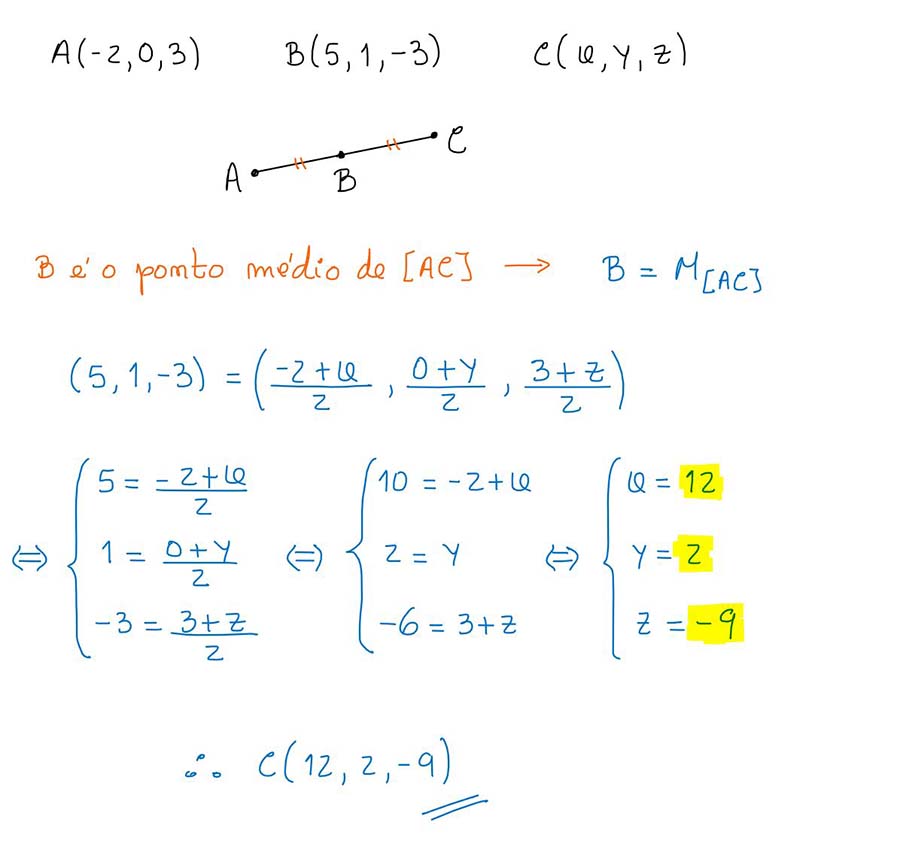 A(-2,0,3) B(5,1,-3) C(x,y,z)
A B C
B é o ponto médio de [AC] → B = M[AC]
(5,1,-3) = (-2+x/2, 0+y/2, 3+z/2)
⇔ { 5 = -2+x/2 ⇔ { 10 = -2+x ⇔ { x = 12
1 = 0+y/2 2 = y y = 2
-3 = 3+z/2 -6 = 3+z z = -9
∴ C(12,2,-9)